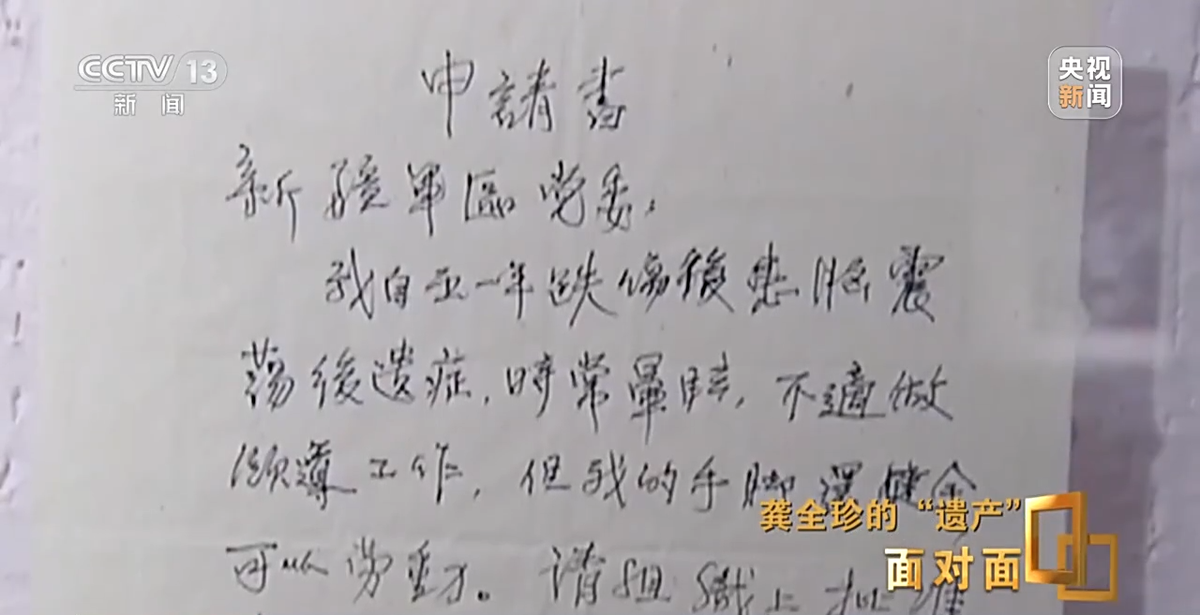 CCTV 13
新闻
央视
新闻
申請書
新疆軍區党委：
我自五一年跌傷後患脑震
荡後遺症，時常暈眩，不適做
領導工作，但我的手脚還健全
可以劳動。请组織上批准
龚全珍的“遗产”
面对面